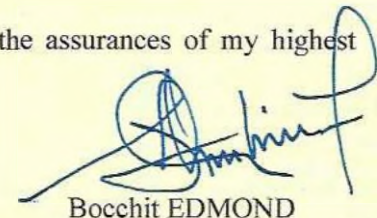 the assurances of my highest
Bocchit EDMOND